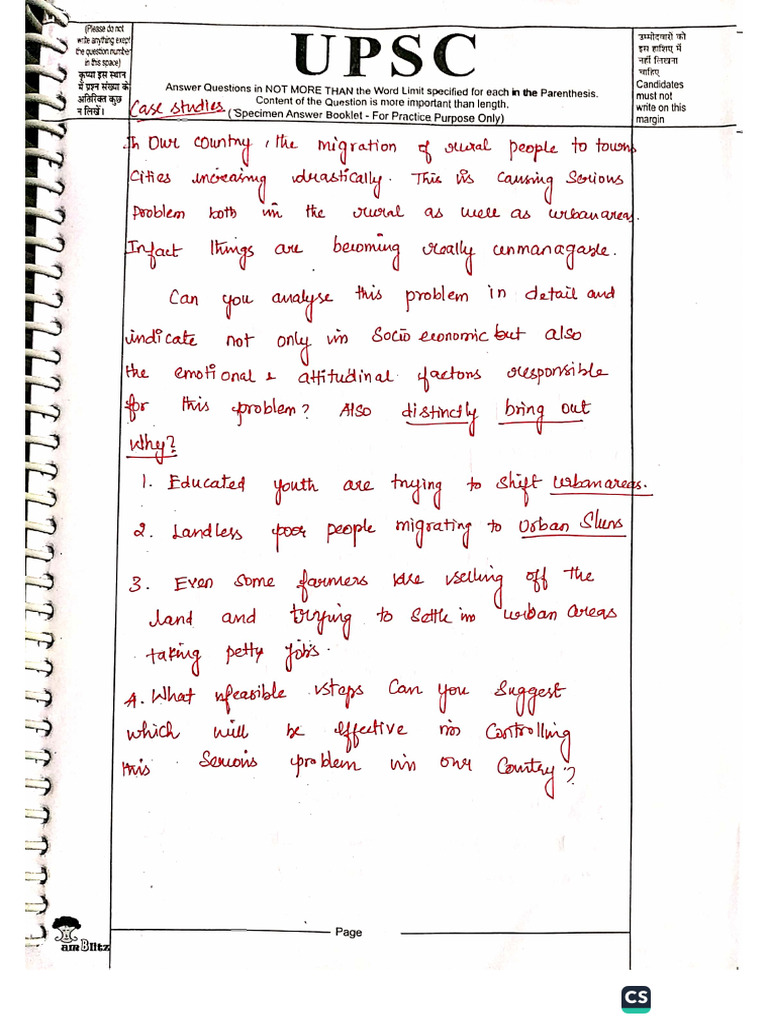 (Please do not
write anything exept
the question number
in this space)
कृप्या इस स्थान
में प्रश्न संख्या के
अतिरिक्त कुछ
न लिखें।
UPSC
Answer Questions in NOT MORE THAN the Word Limit specified for each in the Parenthesis.
Content of the Question is more important than length.
(Specimen Answer Booklet - For Practice Purpose Only)
उम्मीदवारों को
इस हाशिए में
नहीं लिखना
चाहिए
Candidates
must not
write on this
margin
Case studies
In our country, the migration of rural people to towns
Cities increasing drastically. This is causing serious
problem both in the rural as well as urban areas.
Infact things are becoming really unmanagable.
Can you analyse this problem in detail and
indicate not only in Socio economic but also
the emotional & attitudinal factors responsible
for this problem? Also distinctly bring out
why?
1. Educated youth are trying to shift urban areas.
2. Landless poor people migrating to urban Slums
3. Even some farmers are selling off the
land and trying to settle in urban areas
taking petty jobs.
4. What feasible steps can you suggest
which will be effective in controlling
this serious problem in our country?
Page
am Blitz
CS